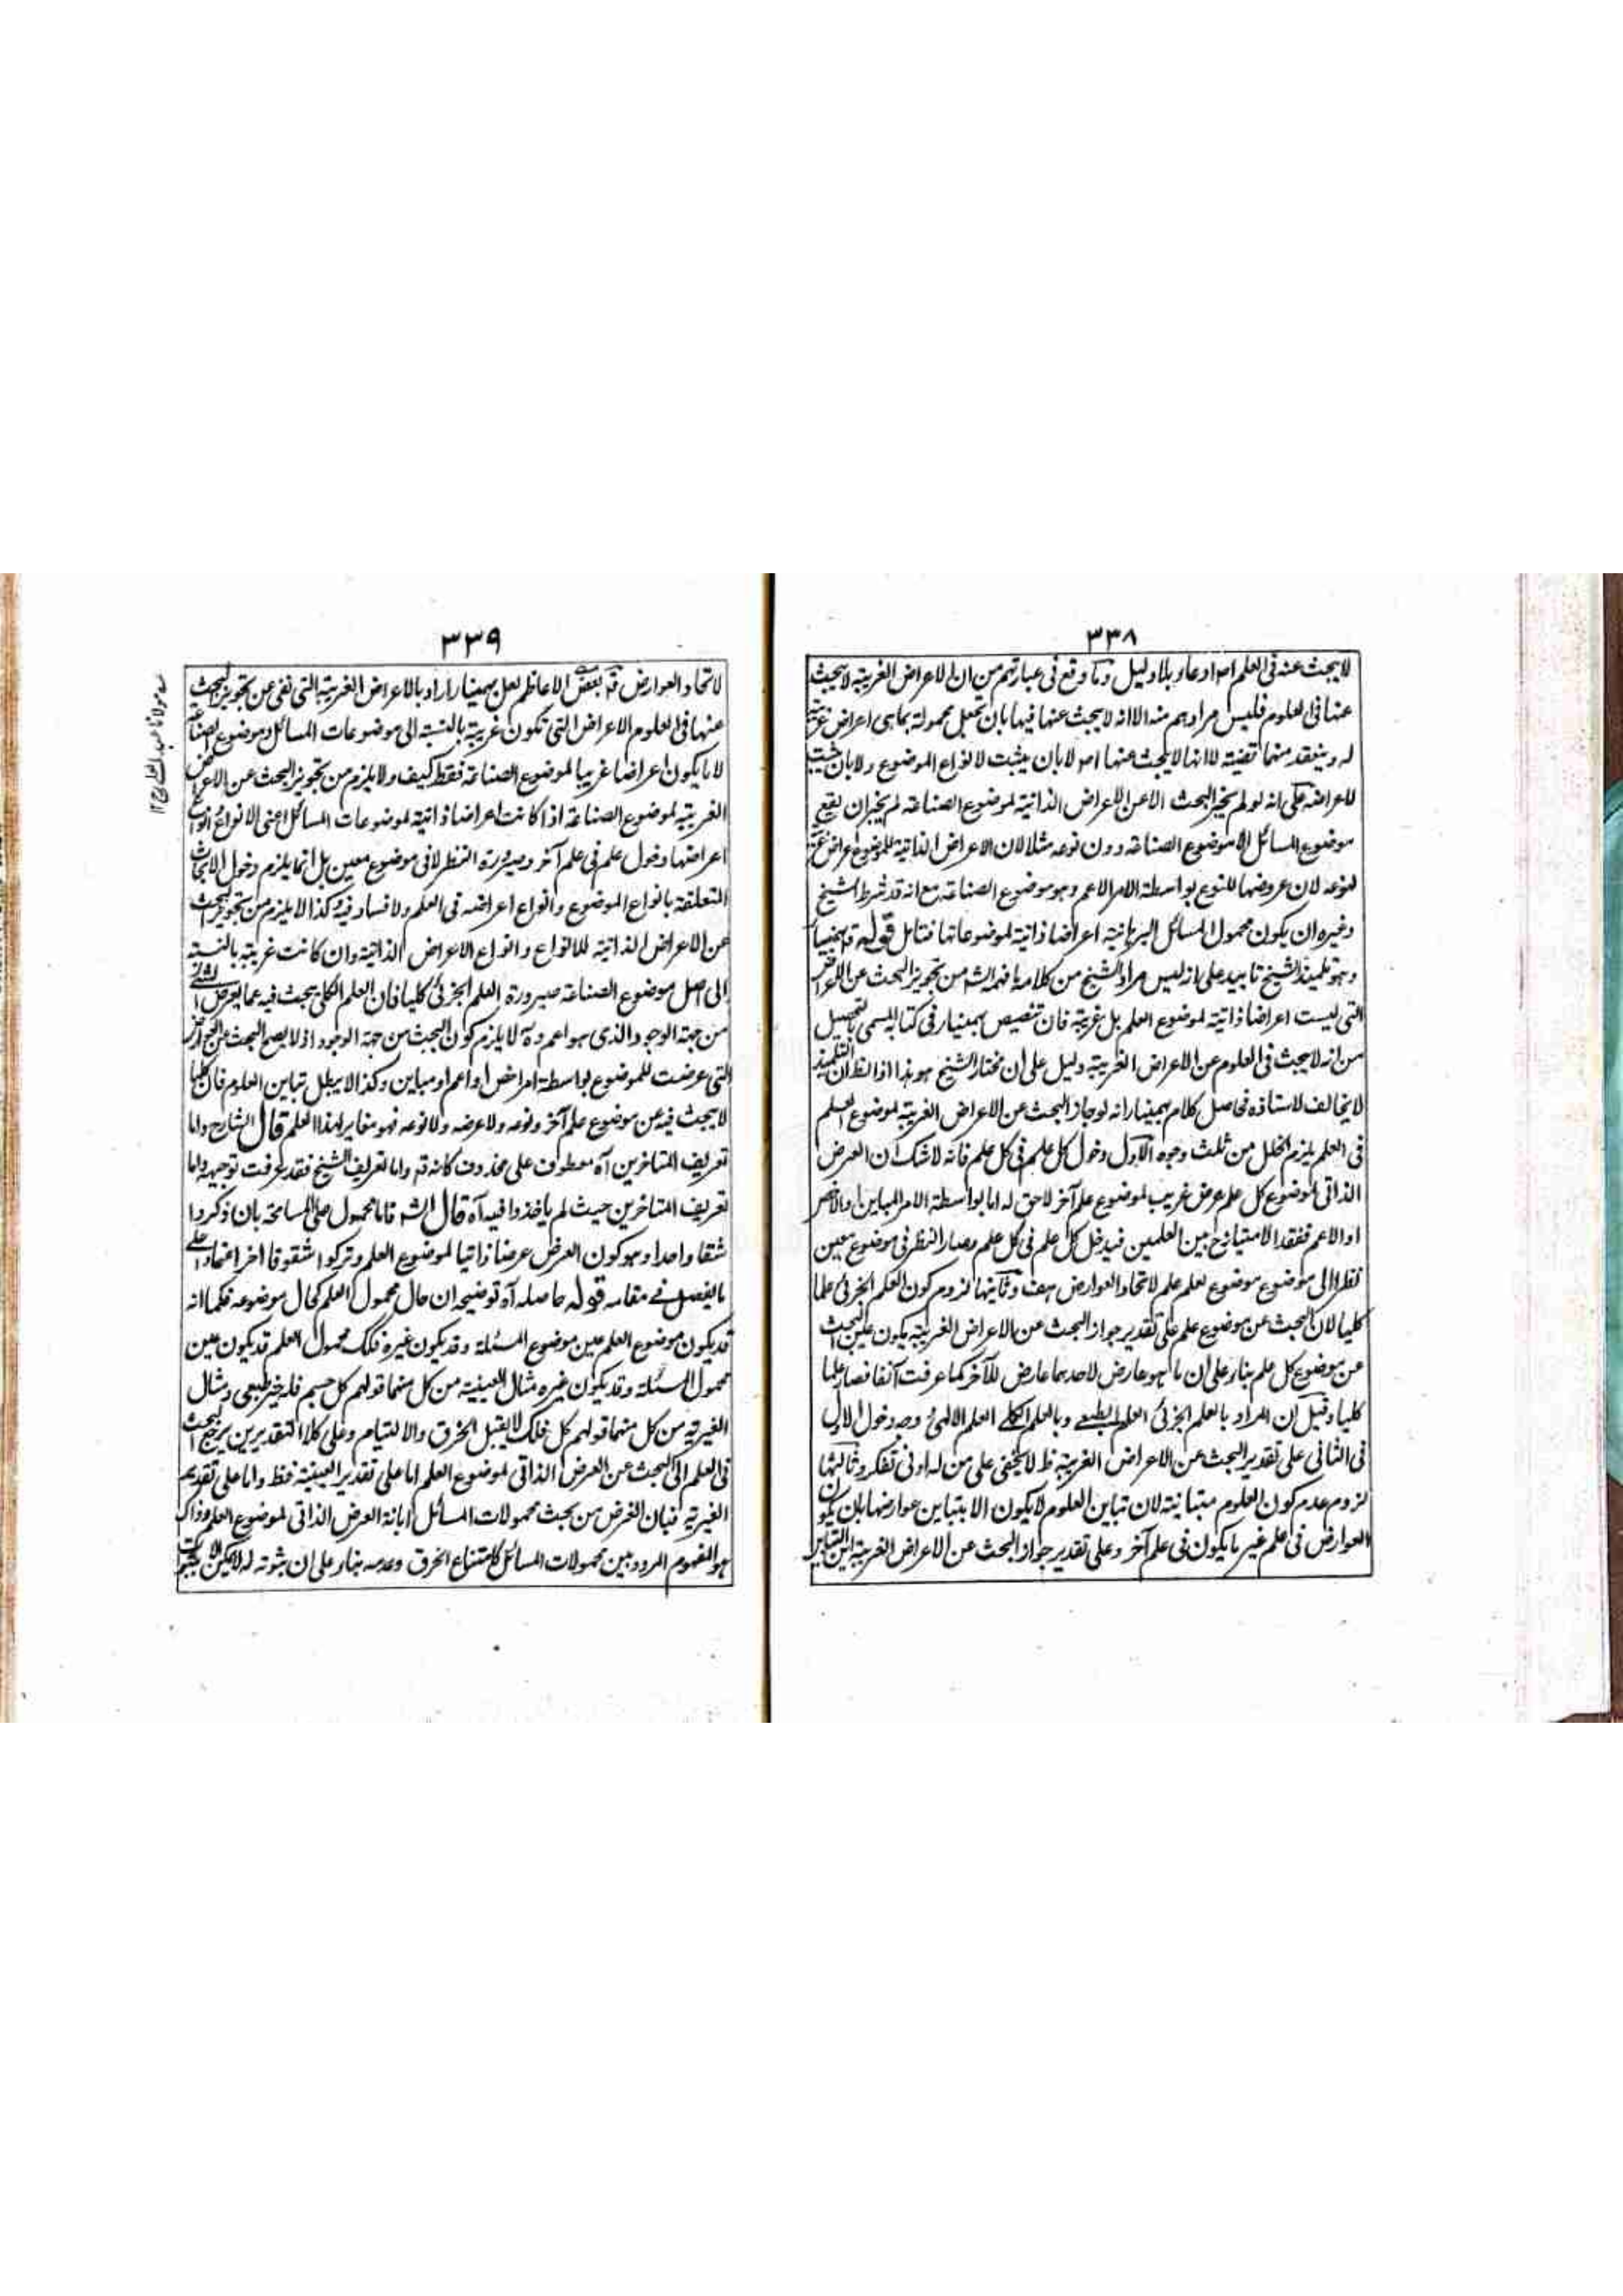 ٣٣٨
لا يبحث عنه فى العلم اصلا ادعاء بلا دليل وما وقع فى عبارتهم من ان الاعراض الغريبة لا يبحث
عنها فى العلوم فليس مرادهم منه الا انه لا يبحث عنها فيها بان تجعل محمولة بما هى اعراض غريبة
له وينعقد منها قضية لا انها لا يبحث عنها اصلا بان يثبت لانواع الموضوع ولا بان يثبت
لاعراضه على انه لو لم يجز البحث الا عن الاعراض الذاتية لموضوع الصناعة لم يجز ان يقع
موضوع المسائل الا موضوع الصناعة دون نوعه مثلا لان الاعراض الذاتية للموضوع اعراض غريبة
لنوعه لان عروضها للنوع بواسطة الامر الاعم وهو موضوع الصناعة مع انه قد شرط الشيخ
وغيره ان يكون محمول المسائل البرهانية اعراضا ذاتية لموضوعاتها فتامل قوله قد بهمنيار
وهو تلميذ الشيخ تاييد على انه ليس مراد الشيخ من كلامه ما فهمه الش من تجويز البحث عن الاعراض
التى ليست اعراضا ذاتية لموضوع العلم بل غريبة فان تنصيص بهمنيار فى كتابه المسمى بالتحصيل
من انه لا يبحث فى العلوم عن الاعراض الغريبة دليل على ان مختار الشيخ هو هذا اذ الظ ان التلميذ
لا يخالف لاستاذه فحاصل كلام بهمنيار انه لو جاز البحث عن الاعراض الغريبة لموضوع العلم
فى العلم يلزم الخلل من ثلث وجوه الاول دخول كل علم فى كل علم فانه لا شك ان العرض
الذاتى لموضوع كل علم عرض غريب لموضوع علم آخر لاحق له اما بواسطة الامر المباين او الاخص
او الاعم ففقد الامتياز ح بين العلمين فيدخل كل علم فى كل علم وصار النظر فى موضوع معين
نظرا الى موضوع موضوع لعلم علم لاتحاد العوارض هف وثانيها لزوم كون العلم الجزئى علما
كليا لان البحث عن موضوع علم على تقدير جواز البحث عن الاعراض الغريبة يكون عين البحث
عن موضوع كل علم بناء على ان ما هو عارض لاحدهما عارض للآخر كما عرفت آنفا فصار علما
كليا وقيل ان المراد بالعلم الجزئى العلم الطبيعى وبالعلم الكلى العلم الالهى وجه دخول الاول
فى الثانى على تقدير البحث عن الاعراض الغريبة ظ لا يخفى على من له ادنى تفكر وثالثها
لزوم عدم كون العلوم متباينة لان تباين العلوم لا يكون الا بتباين عوارضها بان يكون
العوارض فى علم غير ما يكون فى علم آخر وعلى تقدير جواز البحث عن الاعراض الغريبة اين التباين
٣٣٩
لاتحاد العوارض قد بعض الاعاظم لعل بهمنيار اراد بالاعراض الغريبة التى نفى عن تجويز البحث
عنها فى العلوم الاعراض التى تكون غريبة بالنسبة الى موضوعات المسائل وموضوع الصناعة
لا ما يكون اعراضا غريبا لموضوع الصناعة فقط كيف ولا يلزم من تجويز البحث عن الاعراض
الغريبة لموضوع الصناعة اذا كانت اعراضا ذاتية لموضوعات المسائل اعنى الانواع او انواع
اعراضها دخول علم فى علم آخر وصيرورة النظر لا فى موضوع معين بل انما يلزم دخول الابحاث
المتعلقة بانواع الموضوع وانواع اعراضه فى العلم ولا فساد فيه وكذا لا يلزم من تجويز البحث
عن الاعراض الذاتية للانواع وانواع الاعراض الذاتية وان كانت غريبة بالنسبة
الى اصل موضوع الصناعة صيرورة العلم الجزئى كليا فان العلم الكلى يبحث فيه عما يعرض الشئ
من جهة الوجود الذى هو اعم وه لا يلزم كون البحث من جهة الوجود اذ لا يصح البحث عن العوارض
التى عرضت للموضوع بواسطة امر اخص او اعم او مباين وكذا لا يبطل تباين العلوم فان علما
لا يبحث فيه عن موضوع علم آخر ونوعه ولا عرضه ولا نوعه فهو مغاير لهذا العلم قال الشارح واما
تعريف المتاخرين آه معطوف على محذوف كانه قد واما تعريف الشيخ فقد عرفت توجيهه واما
تعريف المتاخرين حيث لم ياخذوا فيه آه قال الش فاما محمول على المسامحة بان ذكروا
شقا واحدا وهو كون العرض عرضا ذاتيا لموضوع العلم وتركوا شقوقا اخر اعتمادا على
ما يفصل فى مقامه قوله حاصله آه توضيحه ان حال محمول العلم كحال موضوعه فكما انه
قد يكون موضوع العلم عين موضوع المسئلة وقد يكون غيره فكذلك محمول العلم قد يكون عين
محمول المسئلة وقد يكون غيره مثال العينية من كل منهما قولهم كل جسم فله حيز طبعى ومثال
الغيرية من كل منهما قولهم كل فلك لا يقبل الخرق والالتيام وعلى كلا التقديرين يرجع البحث
فى العلم الى البحث عن العرض الذاتى لموضوع العلم اما على تقدير العينية فظ واما على تقدير
الغيرية فبان الغرض من بحث محمولات المسائل ابانة العرض الذاتى لموضوع العلم وذاك
هو المفهوم المردد بين محمولات المسائل كامتناع الخرق وعدمه بناء على ان ثبوته له لا يمكن الا بثبوت
مولانا عبد العلى ١٢